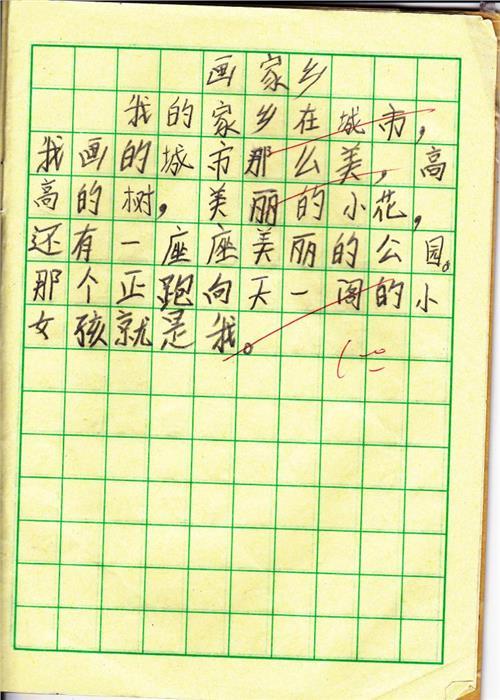 画家乡
我的家乡在城市，
我画的城市那么美，高
高的树，美丽的小花，
还有一座座美丽的公园。
那个正跑向天一阁的小
女孩就是我。